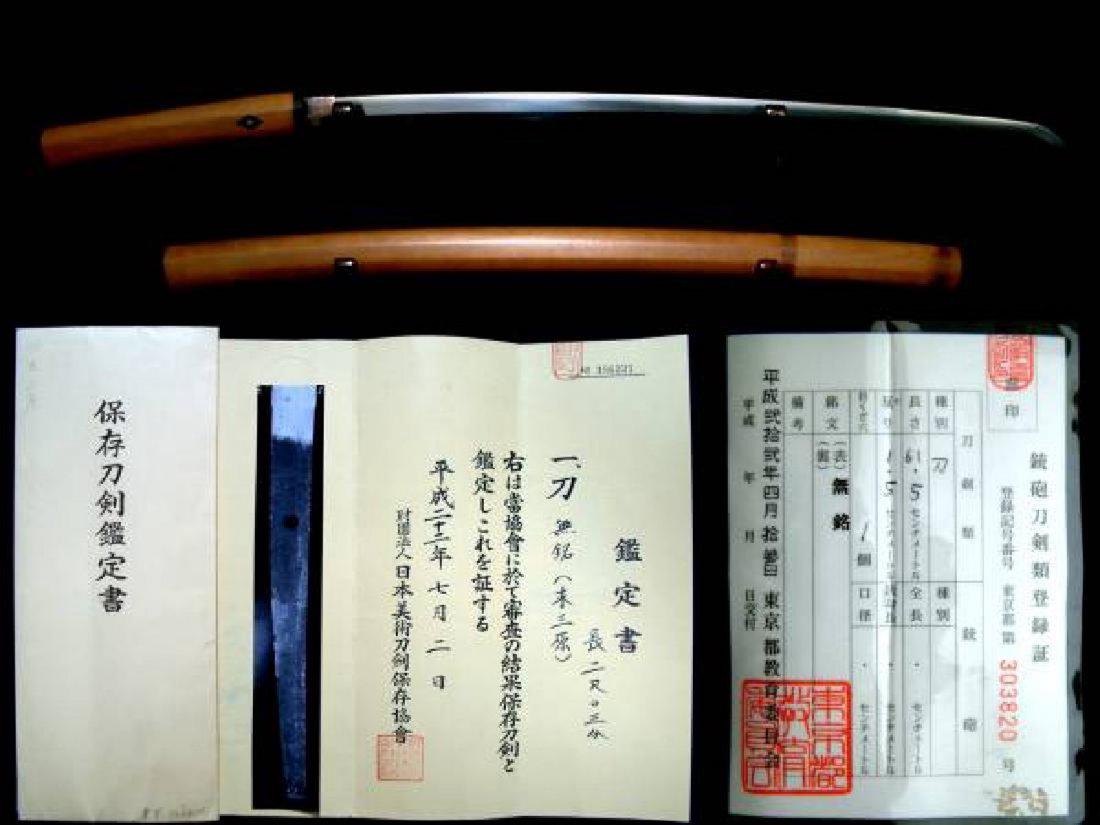 保存刀剣鑑定書
鑑定書
長二尺〇三分
一、刀 無銘(三原)
右は當協會に於て審査の結果保存刀剣と
鑑定しこれを証する
平成二十二年七月二日
財団法人日本美術刀剣保存協會
印
銃砲刀剣類登録証
登録記号番号 東京都第 303820 号
刀剣類 銃砲
種別 刀 種別
長さ 61.5 センチメートル 全長 ・ センチメートル
反り 1.5 センチメートル 銃身長 ・ センチメートル
目くぎ穴 1個 口径 ・ センチメートル
銘文 (表) 無銘
(裏)
備考
平成 年 月 日交付
平成弐拾弐年四月拾参日 東京都教育委員会